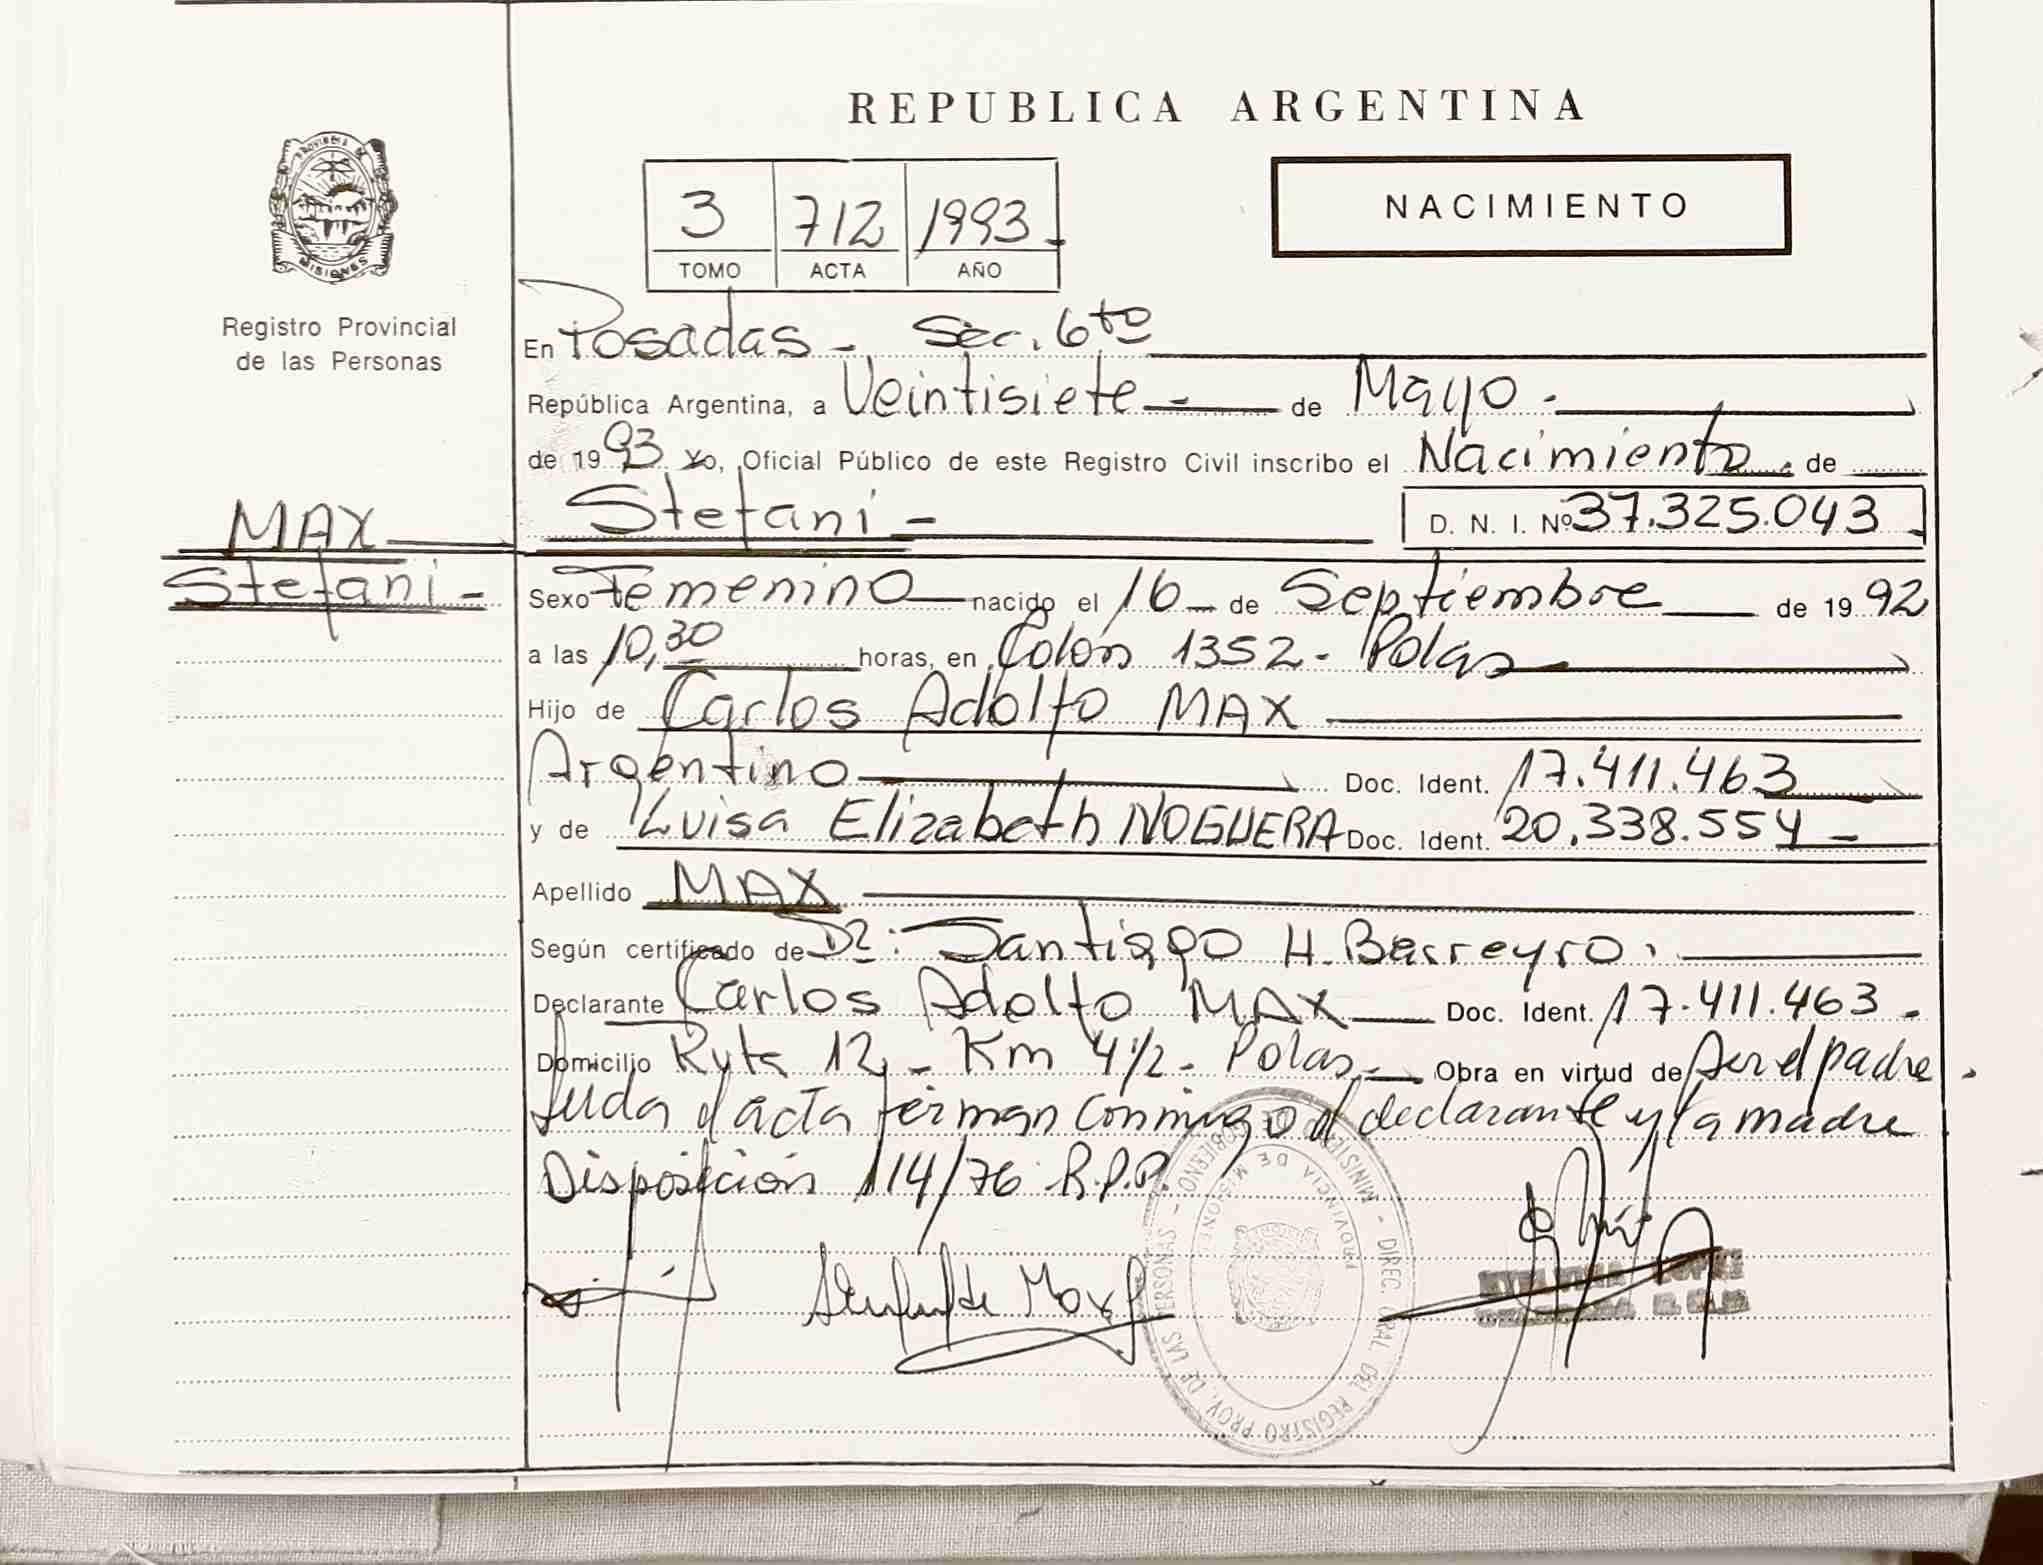 REPUBLICA ARGENTINA
PROVINCIA DE
MISIONES
Registro Provincial
de las Personas
3 712 1993
TOMO ACTA AÑO
NACIMIENTO
En Posadas - Sec. 6to
República Argentina, a Veintisiete - de Mayo -
de 1993 Yo, Oficial Público de este Registro Civil inscribo el Nacimiento de
MAX
Stefani -
Stefani - D. N. I. Nº 37.325.043
Sexo Femenino nacido el 16 de Septiembre de 1992
a las 10,30 horas, en Colón 1352 - Pdas
Hijo de Carlos Adolfo MAX
Argentino Doc. Ident. 17.411.463
y de Luisa Elizabeth NOGUERA Doc. Ident. 20.338.554 -
Apellido MAX
Según certificado de Dr: Santiago H. Barreyro.
Declarante Carlos Adolfo MAX Doc. Ident. 17.411.463 -
Domicilio Ruta 12 - Km 4 1/2 - Pdas - Obra en virtud de Ser el padre.
el acta firman conmigo el declarante y la madre
Disposición 114/76 R.P.P.
MINISTERIO DE GOBIERNO - DIREC. GRAL. DEL REGISTRO PROV. DE LAS PERSONAS -
PROVINCIA DE MISIONES